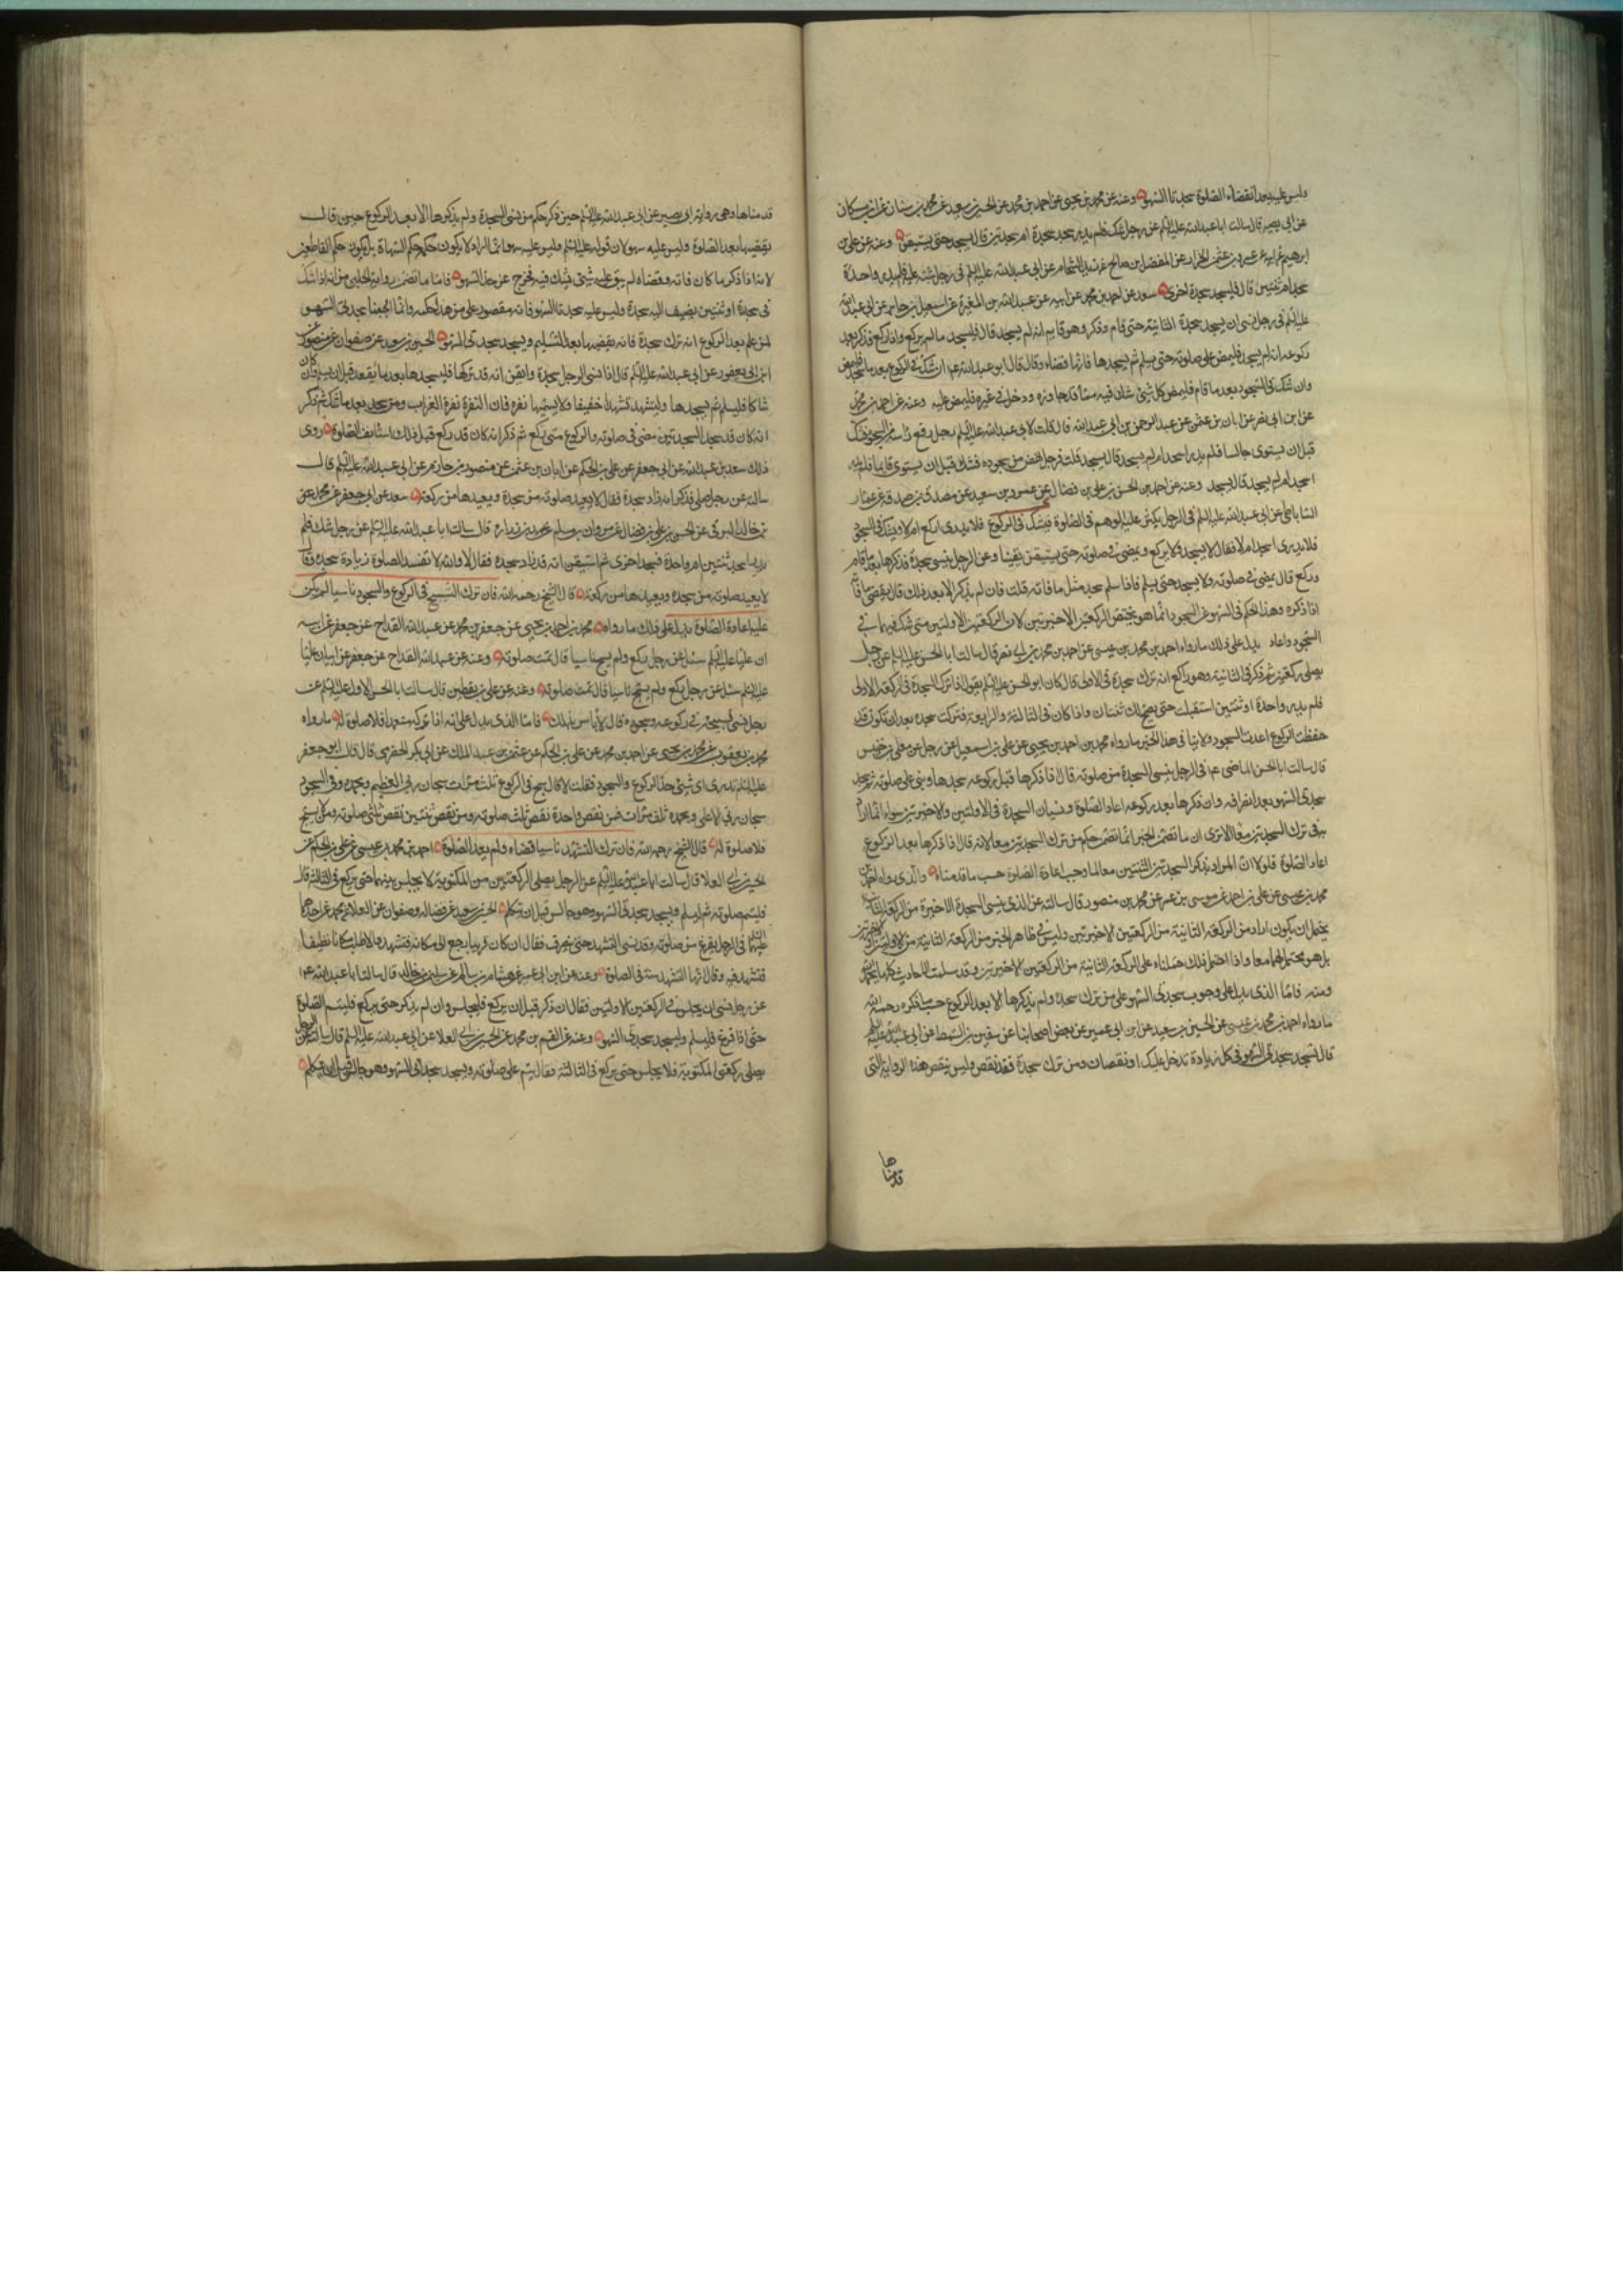 وليس عليه بعد انقضاء الصلوة سجدتا السهو وعنه عن محمد بن يحيى عن احمد بن محمد عن الحسين بن سعيد عن محمد بن سنان عن ابن مسكان
عن ابى بصير قال سالت ابا عبدالله عليه السلم عن رجل شك فلم يدر سجد سجدة ام سجدتين قال يسجد حتى يستيقن وعنه عن على بن
ابرهيم عن ابيه عن عمرو بن عثمن الخزاز عن المفضل بن صالح عن زيد الشحام عن ابى عبدالله عليه السلم فى رجل شبه عليه فلم يدر واحدة
سجد ام ثنتين قال فليسجد سجدة اخرى سعد عن احمد بن محمد عن ابيه عن عبدالله بن المغيرة عن اسمعيل بن جابر عن ابى عبدالله
عليه السلم فى رجل نسى ان يسجد سجدة الثانية حتى قام فذكر وهو قايم انه لم يسجد قال فليسجد ما لم يركع واذا ركع فذكر بعد
ركوعه انه لم يسجد فليمض على صلوته حتى يسلم ثم يسجدها فانها قضاء وقال قال ابو عبدالله ع ان شك فى الركوع بعد ما سجد فليمض
وان شك فى السجود بعد ما قام فليمض كل شئ شك فيه مما قد جاوزه ودخل فى غيره فليمض عليه وعنه عن احمد بن محمد
عن ابن ابى نصر عن ابان بن عثمن عن عبد الرحمن بن ابى عبدالله قال قلت لابى عبدالله عليه السلم رجل رفع راسه من السجود فشك
قبل ان يستوى جالسا فلم يدر اسجد ام لم يسجد قال يسجد قلت فرجل نهض من سجوده فشك قبل ان يستوى قايما فلم يدر
اسجد ام لم يسجد قال يسجد وعنه عن احمد بن الحسن بن على بن فضال عن عمرو بن سعيد عن مصدق بن صدقة عن عمار
الساباطى عن ابى عبدالله عليه السلم فى الرجل يكثر عليه الوهم فى الصلوة فيشك فى الركوع فلا يدرى اركع ام لا ويشك فى السجود
فلا يدرى اسجد ام لا فقال لا يسجد ولا يركع ويمضى فى صلوته حتى يستيقن يقينا وعن الرجل ينسى سجدة فذكرها بعد ما قام
وركع قال يمضى فى صلوته ولا يسجد حتى يسلم فاذا سلم سجد مثل ما فاته قلت فان لم يذكر الا بعد ذلك قال يقضى ما فاته
اذا ذكره وهذا الحكم فى السهو عن السجود انما هو يختص الركعتين الاخيرتين لان الركعتين الاولتين متى شك فيهما فى
السجود اعاد يدل على ذلك ما رواه احمد بن محمد بن عيسى عن احمد بن محمد بن ابى نصر قال سالت ابا الحسن عليه السلم عن رجل
يصلى ركعتين ثم ذكر فى الثانية وهو راكع انه ترك سجدة فى الاولى قال كان ابو الحسن عليه السلم يقول اذا ترك السجدة فى الركعة الاولى
فلم يدر واحدة او ثنتين استقبلت حتى يصح لك ثنتان واذا كان فى الثالثة والرابعة فتركت سجدة بعد ان تكون قد
حفظت الركوع اعدت السجود ولا ينافى هذا الخبر ما رواه محمد بن احمد بن يحيى عن على بن اسمعيل عن رجل عن معلى بن خنيس
قال سالت ابا الحسن الماضى ع فى الرجل ينسى السجدة من صلوته قال اذا ذكرها قبل ركوعه سجدها وبنى على صلوته ثم سجد
سجدتى السهو بعد انصرافه وان ذكرها بعد ركوعه اعاد الصلوة ونسيان السجدة فى الاولتين والاخيرتين سواء
فى ترك السجدتين معا الا ترى ان ما تضمن الخبر انما تضمن حكم من ترك السجدتين معا لانه قال فاذا ذكرها بعد الركوع
اعاد الصلوة فلولا ان المراد بذكر السجدتين الثنتين معا لما وجب اعادة الصلوة حسب ما قدمناه والذى رواه احمد بن
محمد بن عيسى عن على بن احمد عن موسى بن عمر عن محمد بن منصور قال سالته عن الذى ينسى السجدة الاخيرة من الركعة الثانية
يحتمل ان يكون اراد من الركعة الثانية من الركعتين الاخيرتين وليس فى ظاهر الخبر من الركعة الثانية من الاولتين او الاخيرتين
بل هو محتمل لهما معا واذا احتمل ذلك حملناه على الركعة الثانية من الركعتين الاخيرتين وقد سلمت الاحاديث كلها بحمد الله
ومنه فاما الذى يدل على وجوب سجدتى السهو على من ترك سجدة ولم يذكرها الا بعد الركوع حسب ما ذكره رحمه الله
ما رواه احمد بن محمد بن عيسى عن الحسين بن سعيد عن ابن ابى عمير عن بعض اصحابنا عن سفين بن السمط عن ابى عبدالله عليه السلم
قال تسجد سجدتى السهو فى كل زيادة تدخل عليك او نقصان ومن ترك سجدة فقد نقص وليس ينقض هذا الرواية التى
قدمناها
قدمناها وهى رواية ابى بصير عن ابى عبدالله عليه السلم حين ذكر حكم من نسى السجدة ولم يذكرها الا بعد الركوع حين قال
يقضيها بعد الصلوة وليس عليه سهو لان قوله عليه السلم وليس عليه سهو انما اراد لا يكون حكمه حكم السهاة بل يكون حكم القاطعين
لانه اذا ذكر ما كان فاته وقضاه لم يبق عليه شئ يشك فيه فخرج عن حد السهو فاما ما تضمن رواية الحلبى من انه اذا شك
فى سجدة او ثنتين يضيف اليه سجدة وليس عليه سجدتا السهو فانه مقصود على من هذا حكمه وانما اوجبنا سجدتى السهو
لمن علم بعد الركوع انه ترك سجدة فانه يقضيها بعد التسليم ويسجد سجدتى السهو الحسين بن سعيد عن صفوان عن منصور عن
ابن ابى يعفور عن ابى عبدالله عليه السلم قال اذا نسى الرجل سجدة وايقن انه قد تركها فليسجدها بعد ما يقعد قبل ان يسلم وان كان
شاكا فليسلم ثم يسجدها وليتشهد تشهدا خفيفا ولا يسميها نقرة فان النقرة نقرة الغراب ومن سجد بعد ما شك ثم ذكر
انه كان قد سجد السجدتين مضى فى صلوته والركوع متى ركع ثم ذكر انه كان قد ركع قبل ذلك استانف الصلوة روى
ذلك سعد بن عبدالله عن ابى جعفر عن على بن الحكم عن ابان بن عثمن عن منصور بن حازم عن ابى عبدالله عليه السلم قال
سالته عن رجل صلى فذكر انه زاد سجدة فقال لا يعيد صلوته من سجدة ويعيدها من ركعة سعد عن ابى جعفر عن محمد بن
خالد البرقى عن الحسن بن على بن فضال عن مروان بن مسلم عن عبيد بن زرارة قال سالت ابا عبدالله عليه السلم عن رجل شك فلم
يدر اسجد ثنتين ام واحدة فسجد اخرى ثم استيقن انه قد زاد سجدة فقال لا والله لا تفسد الصلوة زيادة سجدة وقال
لا يعيد صلوته من سجدة ويعيدها من ركعة قال الشيخ رحمه الله فان ترك التسبيح فى الركوع والسجود ناسيا لم يكن
عليه اعادة الصلوة يدل على ذلك ما رواه محمد بن احمد بن يحيى عن جعفر بن محمد عن عبدالله القداح عن جعفر عن ابيه
ان عليا عليه السلم سئل عن رجل ركع ولم يسبح ناسيا قال تمت صلوته وعنه عن عبدالله القداح عن جعفر عن ابيه ان عليا
عليه السلم سئل عن رجل ركع ولم يسبح ناسيا قال تمت صلوته وعنه عن على بن يقطين قال سالت ابا الحسن الاول عليه السلم عن
رجل نسى تسبيحة فى ركوعه وسجوده قال لا باس بذلك فاما الذى يدل على انه اذا تركه متعمدا فلا صلوة له ما رواه
محمد بن يعقوب عن محمد بن يحيى عن احمد بن محمد عن على بن الحكم عن عثمن بن عبد الملك عن ابى بكر الحضرمى قال قال ابو جعفر
عليه السلم تدرى اى شئ حد الركوع والسجود فقلت لا قال سبح فى الركوع ثلث مرات سبحان ربى العظيم وبحمده وفى السجود
سبحان ربى الاعلى وبحمده ثلث مرات فمن نقص واحدة نقص ثلث صلوته ومن نقص ثنتين نقص ثلثى صلوته ومن لم يسبح
فلا صلوة له قال الشيخ رحمه الله فان ترك التشهد ناسيا قضاه ولم يعد الصلوة احمد بن محمد بن عيسى عن على بن الحكم عن
الحسين بن ابى العلا قال سالت ابا عبدالله عليه السلم عن الرجل يصلى الركعتين من المكتوبة لا يجلس بينهما حتى يركع فى الثالثة قال
فليتم صلوته ثم ليسلم ويسجد سجدتى السهو وهو جالس قبل ان يتكلم الحسين بن سعيد عن فضالة وصفوان عن العلا عن محمد عن احدهما
عليهما السلم فى الرجل يفرغ من صلوته وقد نسى التشهد حتى ينصرف فقال ان كان قريبا رجع الى مكانه فتشهد والا طلب مكانا نظيفا
فتشهد فيه وقال انما التشهد سنة فى الصلوة وعنه عن ابن ابى عمير عن هشام بن سالم عن سليمن بن خالد قال سالت ابا عبدالله ع
عن رجل نسى ان يجلس فى الركعتين الاولتين فقال ان ذكر قبل ان يركع فليجلس وان لم يذكر حتى يركع فليتم الصلوة
حتى اذا فرغ فليسلم وليسجد سجدتى السهو وعنه عن القسم بن محمد عن الحسين بن ابى العلا عن ابى عبدالله عليه السلم قال سالته عن الرجل
يصلى ركعتى المكتوبة فلا يجلس حتى يركع فى الثالثة فقال يتم على صلوته ويسجد سجدتى السهو وهو جالس قبل ان يتكلم